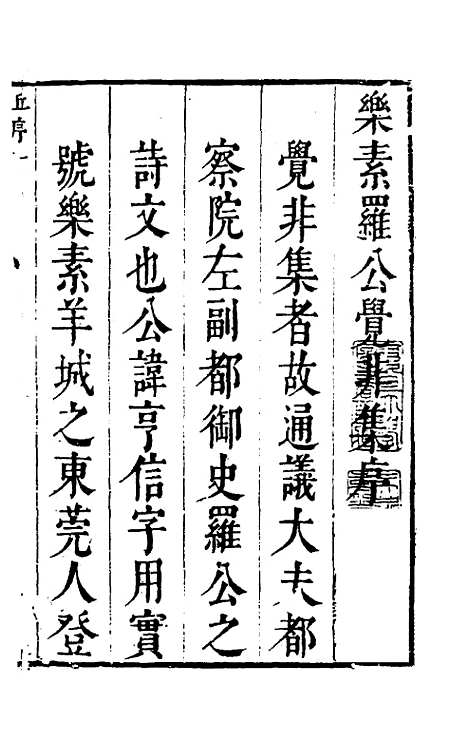 樂素羅公覺非集序
覺非集者故通議大夫都
察院左副都御史羅公之
詩文也公諱亨信字用實
號樂素羊城之東莞人登
丘序 一